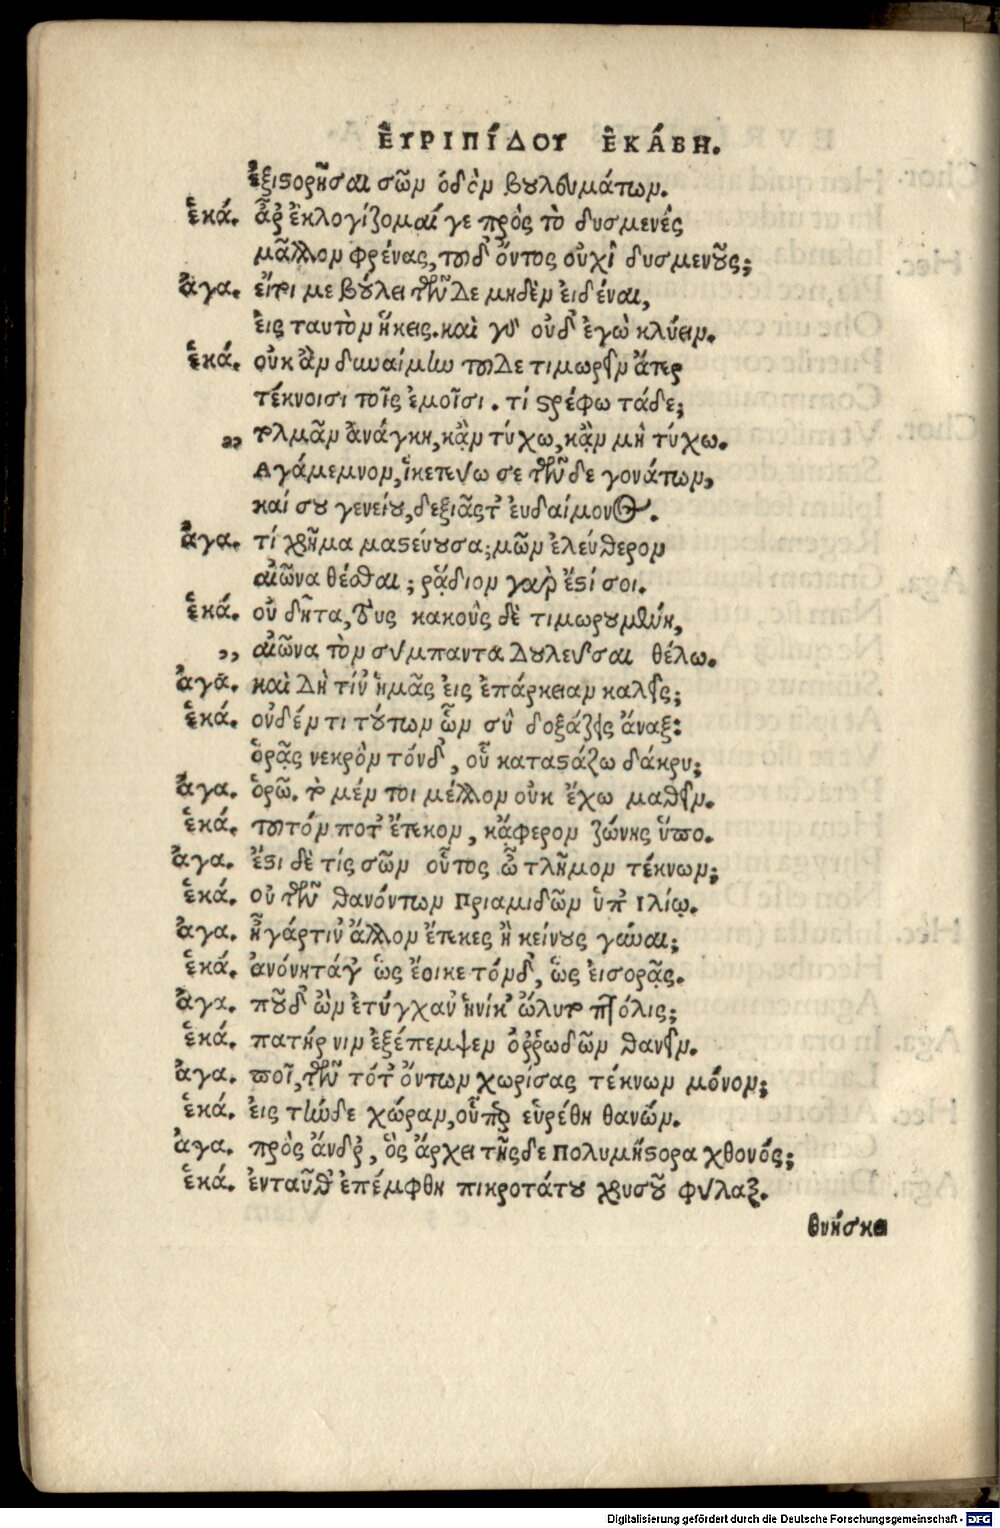 ἘΥΡΙΠΊΔΟΥ ἙΚΆΒΗ.
ἐξιστορῆσαι σῶν ὁδὸν βουλευμάτων.
ἑκά. ἆρ ἐκλογίζομαί γε πρὸς τὸ δυσμενὲς
μᾶλλον φρένας, τοῦδ' ὄντος οὐχὶ δυσμενοῦς;
ἀγα. εἴ τι με βούλει τῶνδε μηδὲν εἰδέναι,
εἰς ταυτὸν ἥκεις. καὶ γὰρ οὐδ' ἐγὼ κλύειν.
ἑκά. οὐκ ἂν δυναίμην τοῦδε τιμωρεῖν ἄτερ
τέκνοισι τοῖς ἐμοῖσι. τί στρέφω τάδε;
„ τολμᾶν ἀνάγκη, κᾂν τύχω, κᾂν μὴ τύχω.
Ἀγάμεμνον, ἱκετεύω σε τῶνδε γονάτων,
καί σου γενείου, δεξιᾶς τ' ἐυδαίμονος.
ἀγα. τί χρῆμα μαστεύουσα; μῶν ἐλεύθερον
αἰῶνα θέσθαι; ῥᾴδιον γάρ ἐστί σοι.
ἑκά. οὐ δῆτα, τοὺς κακοὺς δὲ τιμωρουμένη,
„ αἰῶνα τὸν σύμπαντα δουλεῦσαι θέλω.
ἀγα. καὶ δὴ τίν' ἡμᾶς εἰς ἐπάρκειαν καλεῖς;
ἑκά. οὐδέν τι τούτων ὧν σὺ δοξάζεις ἄναξ:
ὁρᾷς νεκρὸν τόνδ', οὗ καταστάζω δάκρυ;
ἀγα. ὁρῶ. τὸ μέν τοι μέλλον οὐκ ἔχω μαθεῖν.
ἑκά. τοῦτόν ποτ' ἔτεκον, κἄφερον ζώνης ὕπο.
ἀγα. ἔστι δὲ τίς σῶν οὗτος ὦ τλῆμον τέκνων;
ἑκά. οὐ τῶν θανόντων Πριαμιδῶν ὑπ' Ἰλίῳ.
ἀγα. ἦ γάρ τιν' ἄλλον ἔτεκες ἢ κείνους γύναι;
ἑκά. ἀνόνητά γ' ὡς ἔοικε τόνδ', ὡς εἰσορᾷς.
ἀγα. ποῦ δ' ὢν ἐτύγχαν' ἡνίκ' ὤλυτο πτόλις;
ἑκά. πατήρ νιν ἐξέπεμψεν ὀῤῥωδῶν θανεῖν.
ἀγα. ποῖ, τῶν τότ' ὄντων χωρίσας τέκνων μόνον;
ἑκά. εἰς τήνδε χώραν, οὗπερ εὑρέθη θανών.
ἀγα. πρὸς ἄνδρ', ὃς ἄρχει τῆςδε Πολυμήστορα χθονός;
ἑκά. ἐνταῦθ' ἐπέμφθη πικροτάτου χρυσοῦ φύλαξ.
θνήσκει
Digitalisierung gefördert durch die Deutsche Forschungsgemeinschaft - DFG